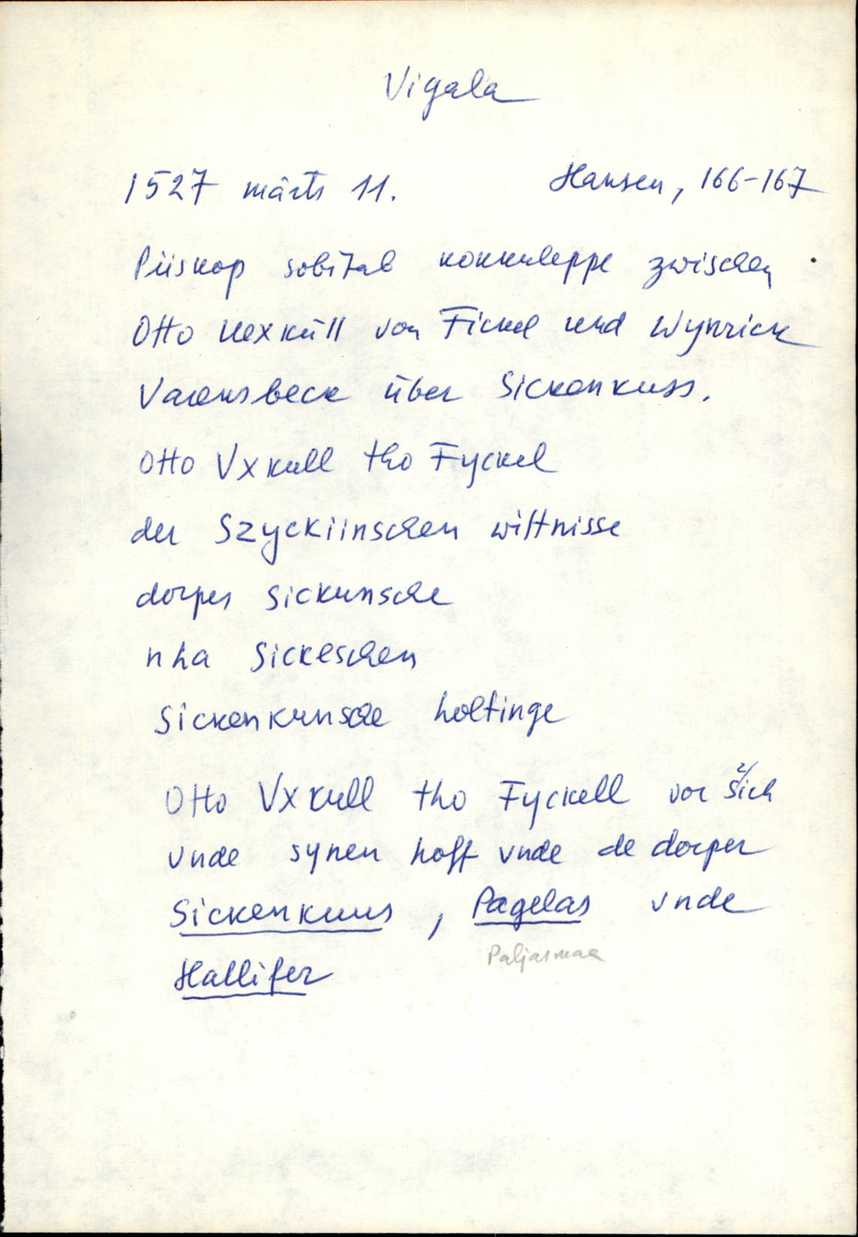 Vigala
1527 märts 11. Hansen, 166-167
Piiskop sobitab kokkuleppe zwischen
Otto Uexküll von Fickel und Wynrick
Varensbeck über Sickenkuss.
Otto Vxkull tho Fyckel
der Szyckiinschen wiltnisse
dorper Sickunsche
nha Sickeschen
Sickenkunsche holtinge
Otto Vxkull tho Fyckell vor sich
vnde synen hoff vnde de dorper
Sickenkuus, Pagelas vnde
Paljasmaa
Hallifer